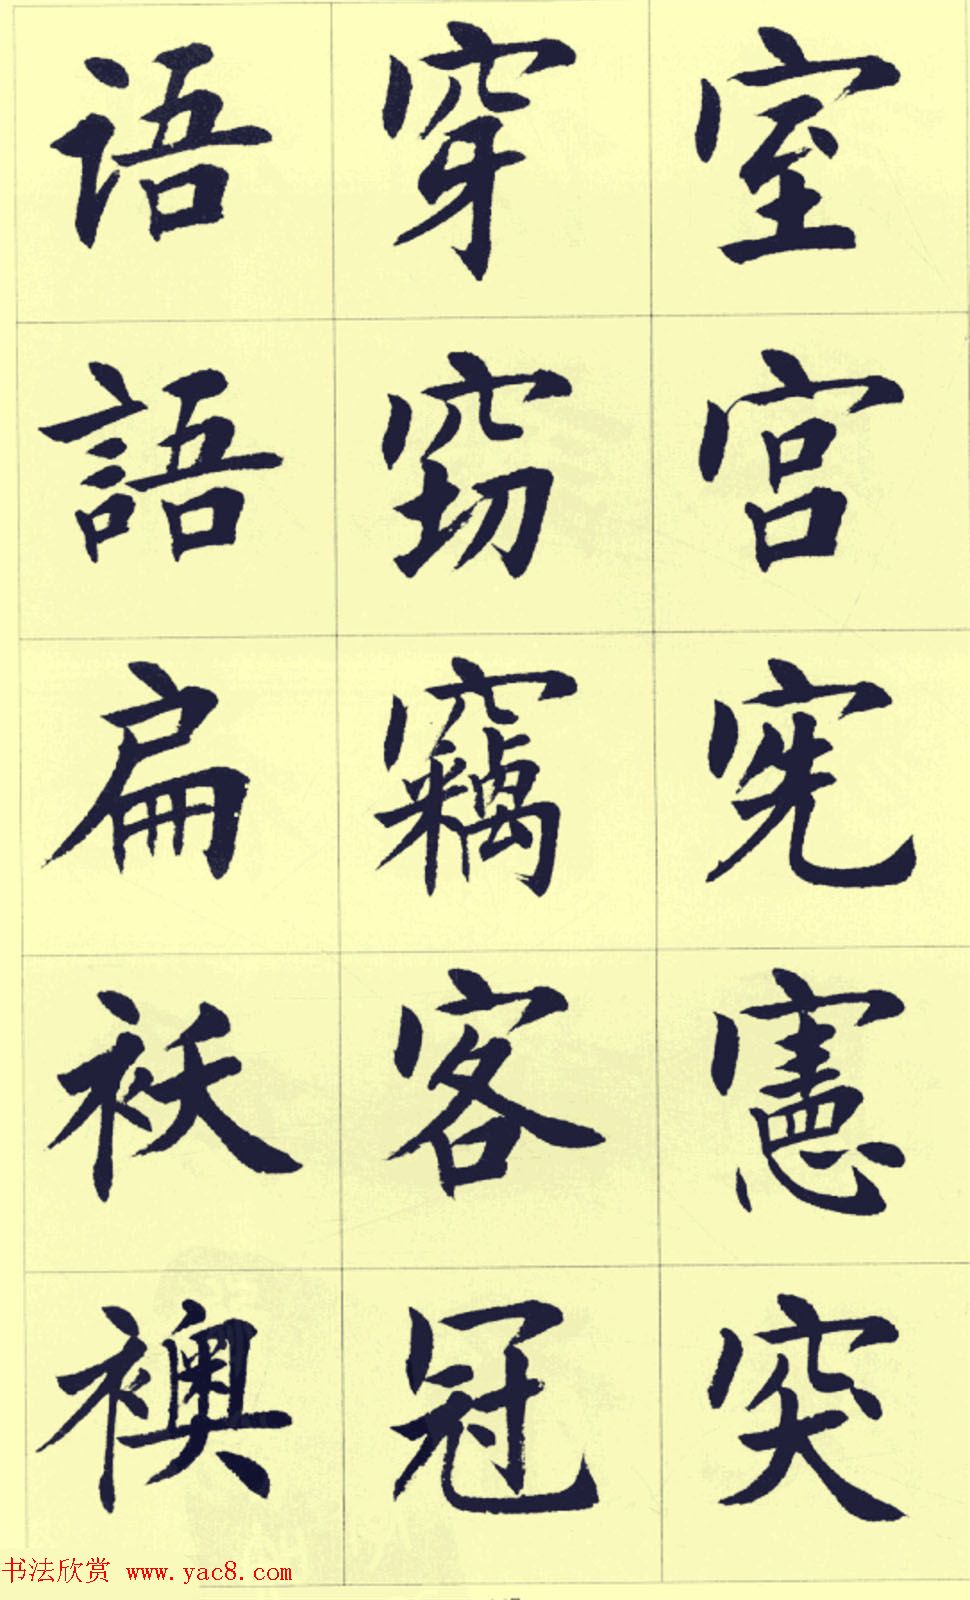 室宫宪憲突
穿窃竊客冠
语語扁袄襖
书法欣赏 www.yac8.com